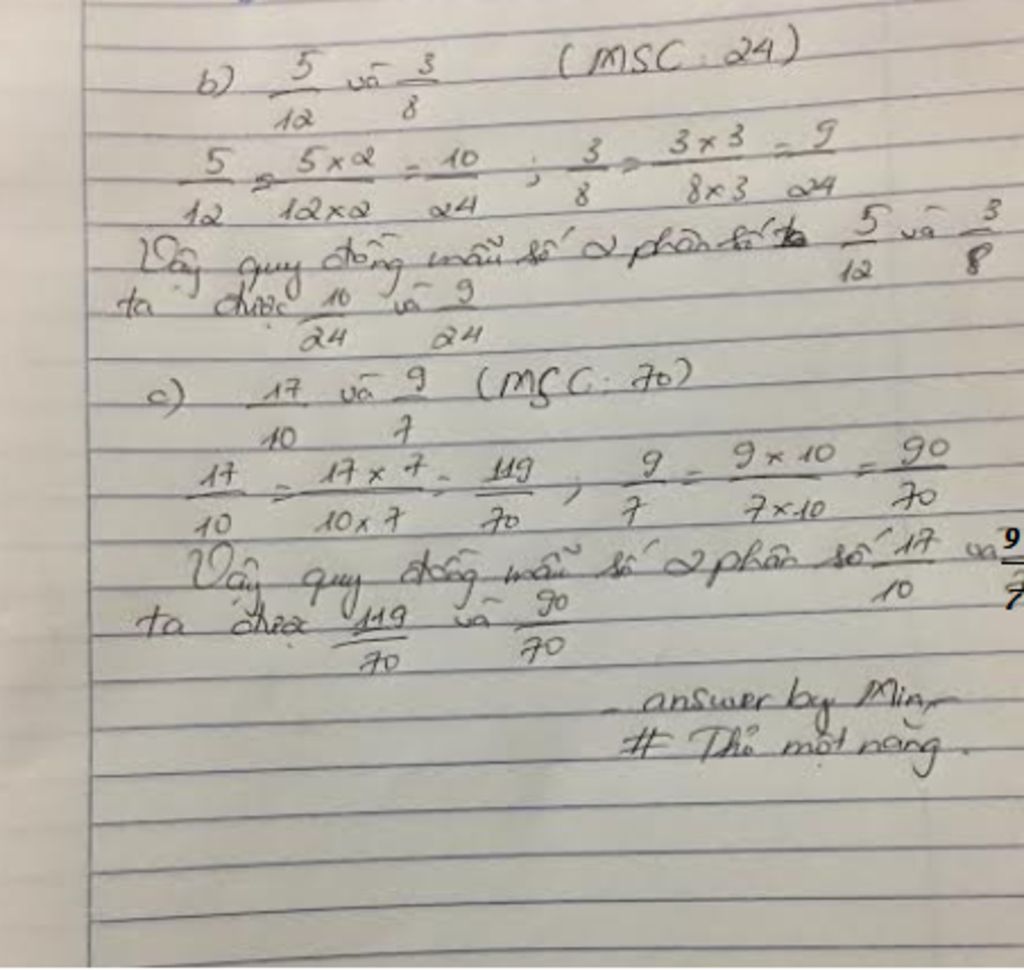 b) 5/12 và 3/8 (MSC: 24)
5/12 = 5 x 2/12 x 2 = 10/24 ; 3/8 = 3 x 3/8 x 3 = 9/24
Vậy quy đồng mẫu số 2 phân số 5/12 và 3/8
ta được 10/24 và 9/24
c) 17/10 và 9/7 (MSC: 70)
17/10 = 17 x 7/10 x 7 = 119/70 ; 9/7 = 9 x 10/7 x 10 = 90/70
Vậy quy đồng mẫu số 2 phân số 17/10 và 9/7
ta được 119/70 và 90/70
answer by Min
# Thỏ một nắng.